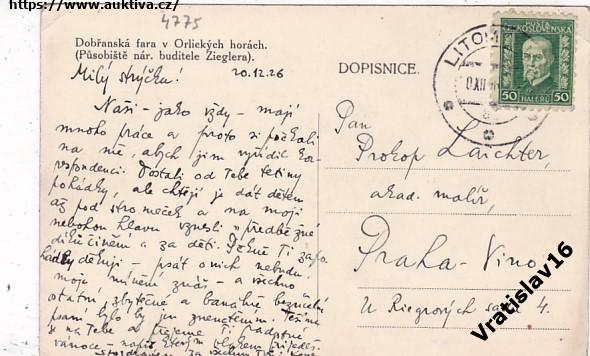 https://www.auktiva.cz/
4775
Dobřanská fara v Orlických horách.
(Působiště nár. buditele Zieglera).
Milý strýčku! 20.12.26
Naši – jako vždy – mají
mnoho práce a proto si počkali
na mne, abych jim vyřídil ko-
respondenci. Dostali od Tebe tetiny
pohádky, ale chtějí je dát dětem
až pod stromeček a na moji
nebohou hlavu vznesli předběžné
díkůčinění a za děti. Děkuji Ti za po-
hádky děkuji – psát o nich nebudu,
moje mínění znáš – a všechno
ostatní, zbytečné a banálně bezúčelné
psaní bylo by jen znectěním. Těšíme
se na Tebe a přejeme Ti radostné
vánoce – napiš, kterým vlakem přijedeš.
za všechny Tě
DOPISNICE.
LITOM
XII
POŠTA
ČESKOSLOVENSKÁ
50 HALÉŘŮ 50
Pan
Prokop Laichter,
akad. malíř,
Praha – Vino
U Riegrových sadů 4.
Vratislav16